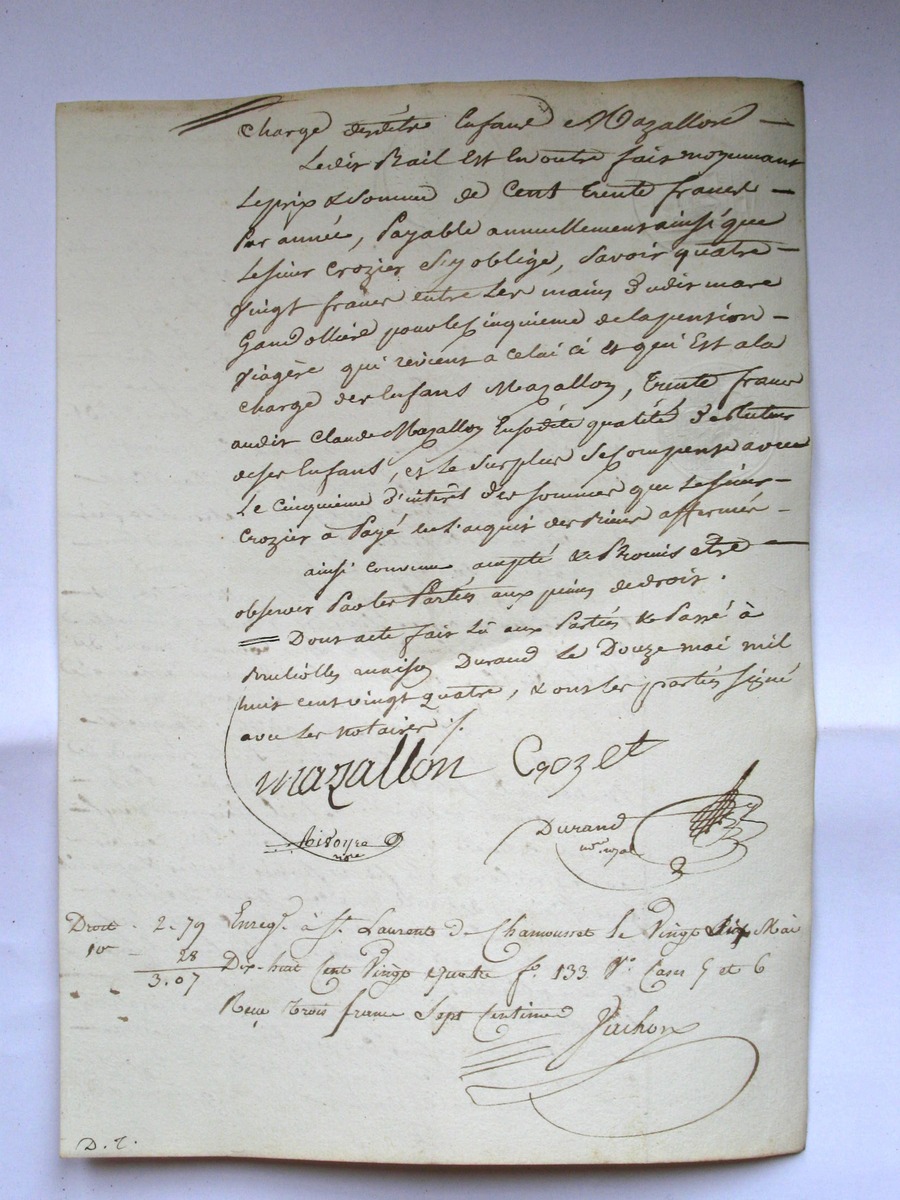 charge desdits Enfans Mazallon —
Ledit Bail est En outre fait moyennant
Le prix & Somme de Cent Trente francs —
Par année, Payable annuellement ainsi que
Le sieur Crozier s'y oblige, Savoir quatre —
Vingt francs entre Les mains dudit marc
Gandollière pour le Cinquieme de la pension —
Viagère qui revient a celui ci et qui Est a la
charge des Enfans Mazallon, Trente francs
audit Claude Mazallon En sadite qualité de tuteur
de ses Enfans, et Le Surplus Se Compense avec
Le Cinquieme d'interêt des Sommes que Le sieur —
Crozier à Payé En L'acquit des Biens affermés —
ainsi convenu accepté & Promis etre —
observer Par les Parties aux peines de droit .
= Dont acte fait Lû aux Parties & Passé à
maison Durand Le Douze mai mil
huit cent vingt quatre, & ont les parties signé
avec Les notaires ./.
Mazallon Crozet
Durand
nre. royal
nre
Droit . 2. 79 Enregé. à St. Laurent de Chamousset le Vingt Mai
10e 28 Dix-huit Cent Vingt quatre fo. 133 Vo. Cases 5 et 6
3. 07
Reçu Trois francs Sept Centimes Jachon
D. T.